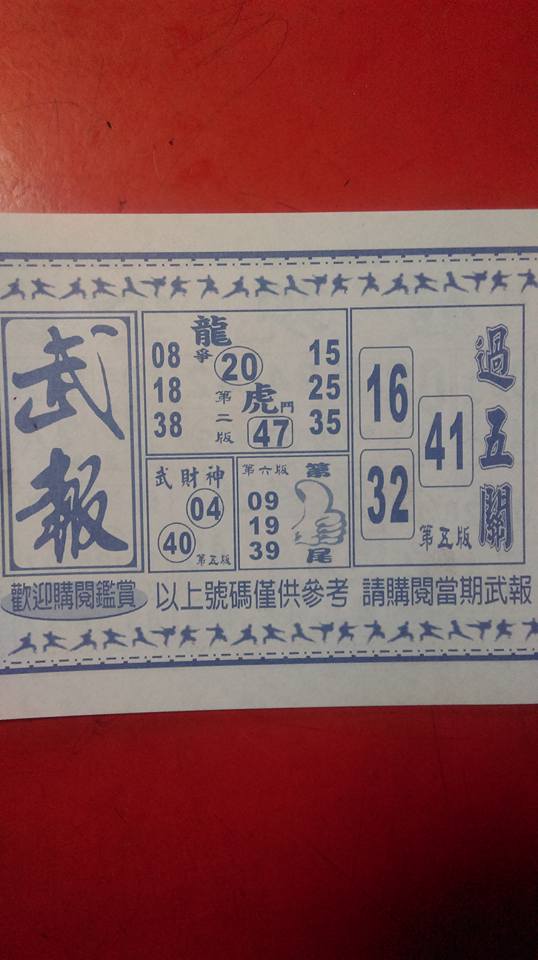 武報
龍爭虎鬥
第二版
08
18
38
20
47
15
25
35
武財神
04
40
第五版
第六版
09
19
39
尾
過五關
16
41
32
第五版
歡迎購閱鑑賞 以上號碼僅供參考 請購閱當期武報